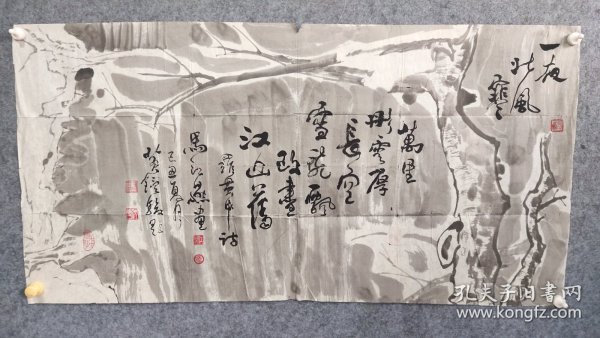 一夜
北風
寒
萬里
彤雲厚
長空
雪亂飄
改盡
江山舊
羅貫中詩
己丑夏月
孔夫子旧书网
www.kongfz.com